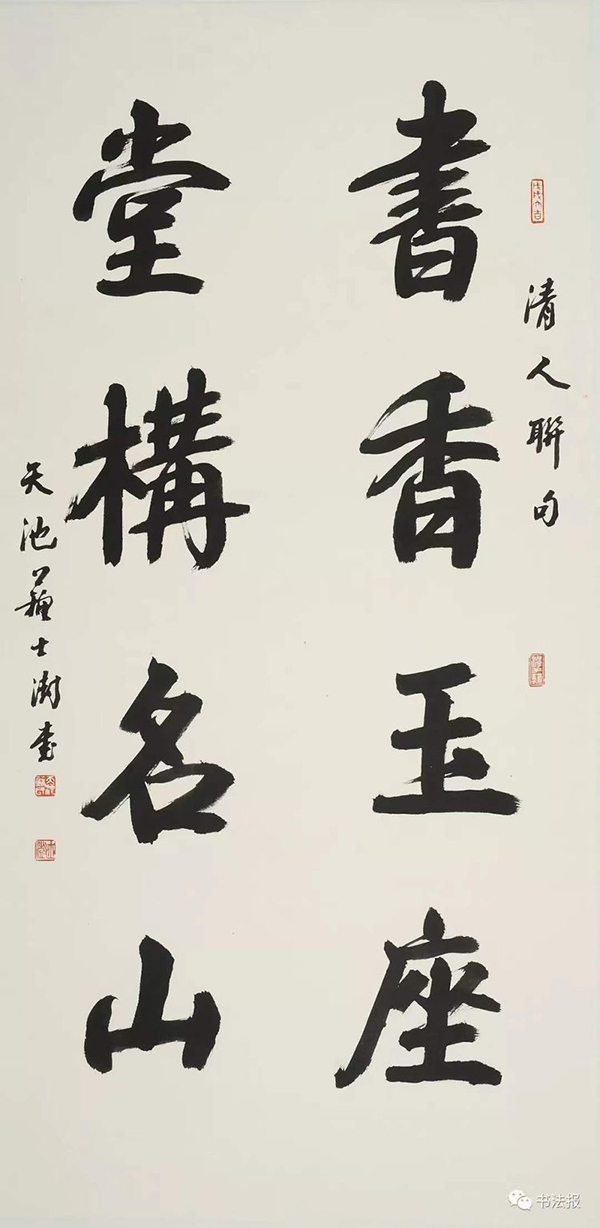 清人聯句
書香玉座
堂構名山
天池蘇士澍書
书法报